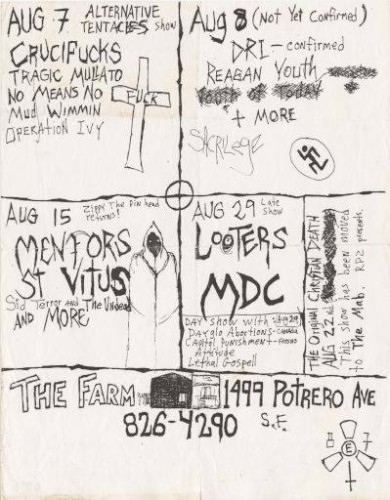 AUG 7 ALTERNATIVE
TENTACLES show
CRUCIFUCKS
TRAGIC MULLATO
NO MEANS NO
Mud Wimmin
OPERATION IVY
FUCK
Aug 8 (Not Yet Confirmed)
DRI - confirmed
REAGAN Youth
Youth of Today
+ MORE
SACRILEGE
AUG 15 Zippy The Pin head
returns!
MENTORS
ST VITUS
Sid Terror and The Undead
AND MORE
AUG 29 Late
show
LOOTERS
MDC
DAY show with
Dayglo Abortions - CANADA
Capitol Punishment - FRESNO
Attitude
Lethal Gospell
THE Original Christian DEATH
AUG 22nd
This show has been moved
to The Mab. RPZ presents
THE FARM 1499 POTRERO AVE
826-4290 S.F.
8 7
E